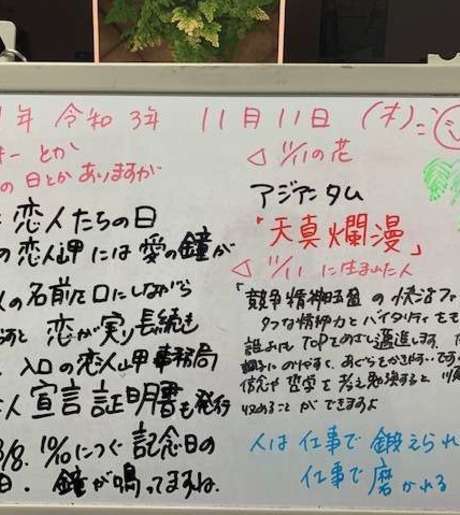 1年 令和3年 11月11日 (木)
ーとか
の日とかありますが
恋人たちの日
の恋人岬には愛の鐘が
人の名前を口にしながら
らすと恋が実り長続き
入口の恋人岬事務局
人宣言証明書も発行
3/8. 10/10につぐ記念日の
日. 鐘が鳴ってますね.
◁ 11/11の花
アジアンタム
「天真爛漫」
◁ 11/11に生まれた人
「競争精神旺盛の快活ファ
タフな精神力とバイタリティをも
誰よりもTOPをめざし邁進します.
調子にのりやすく、あぐらをかきやすいです
信念や哲学を考え勉強すると
収めることができますよ
人は仕事で鍛えられ
仕事で磨かれる